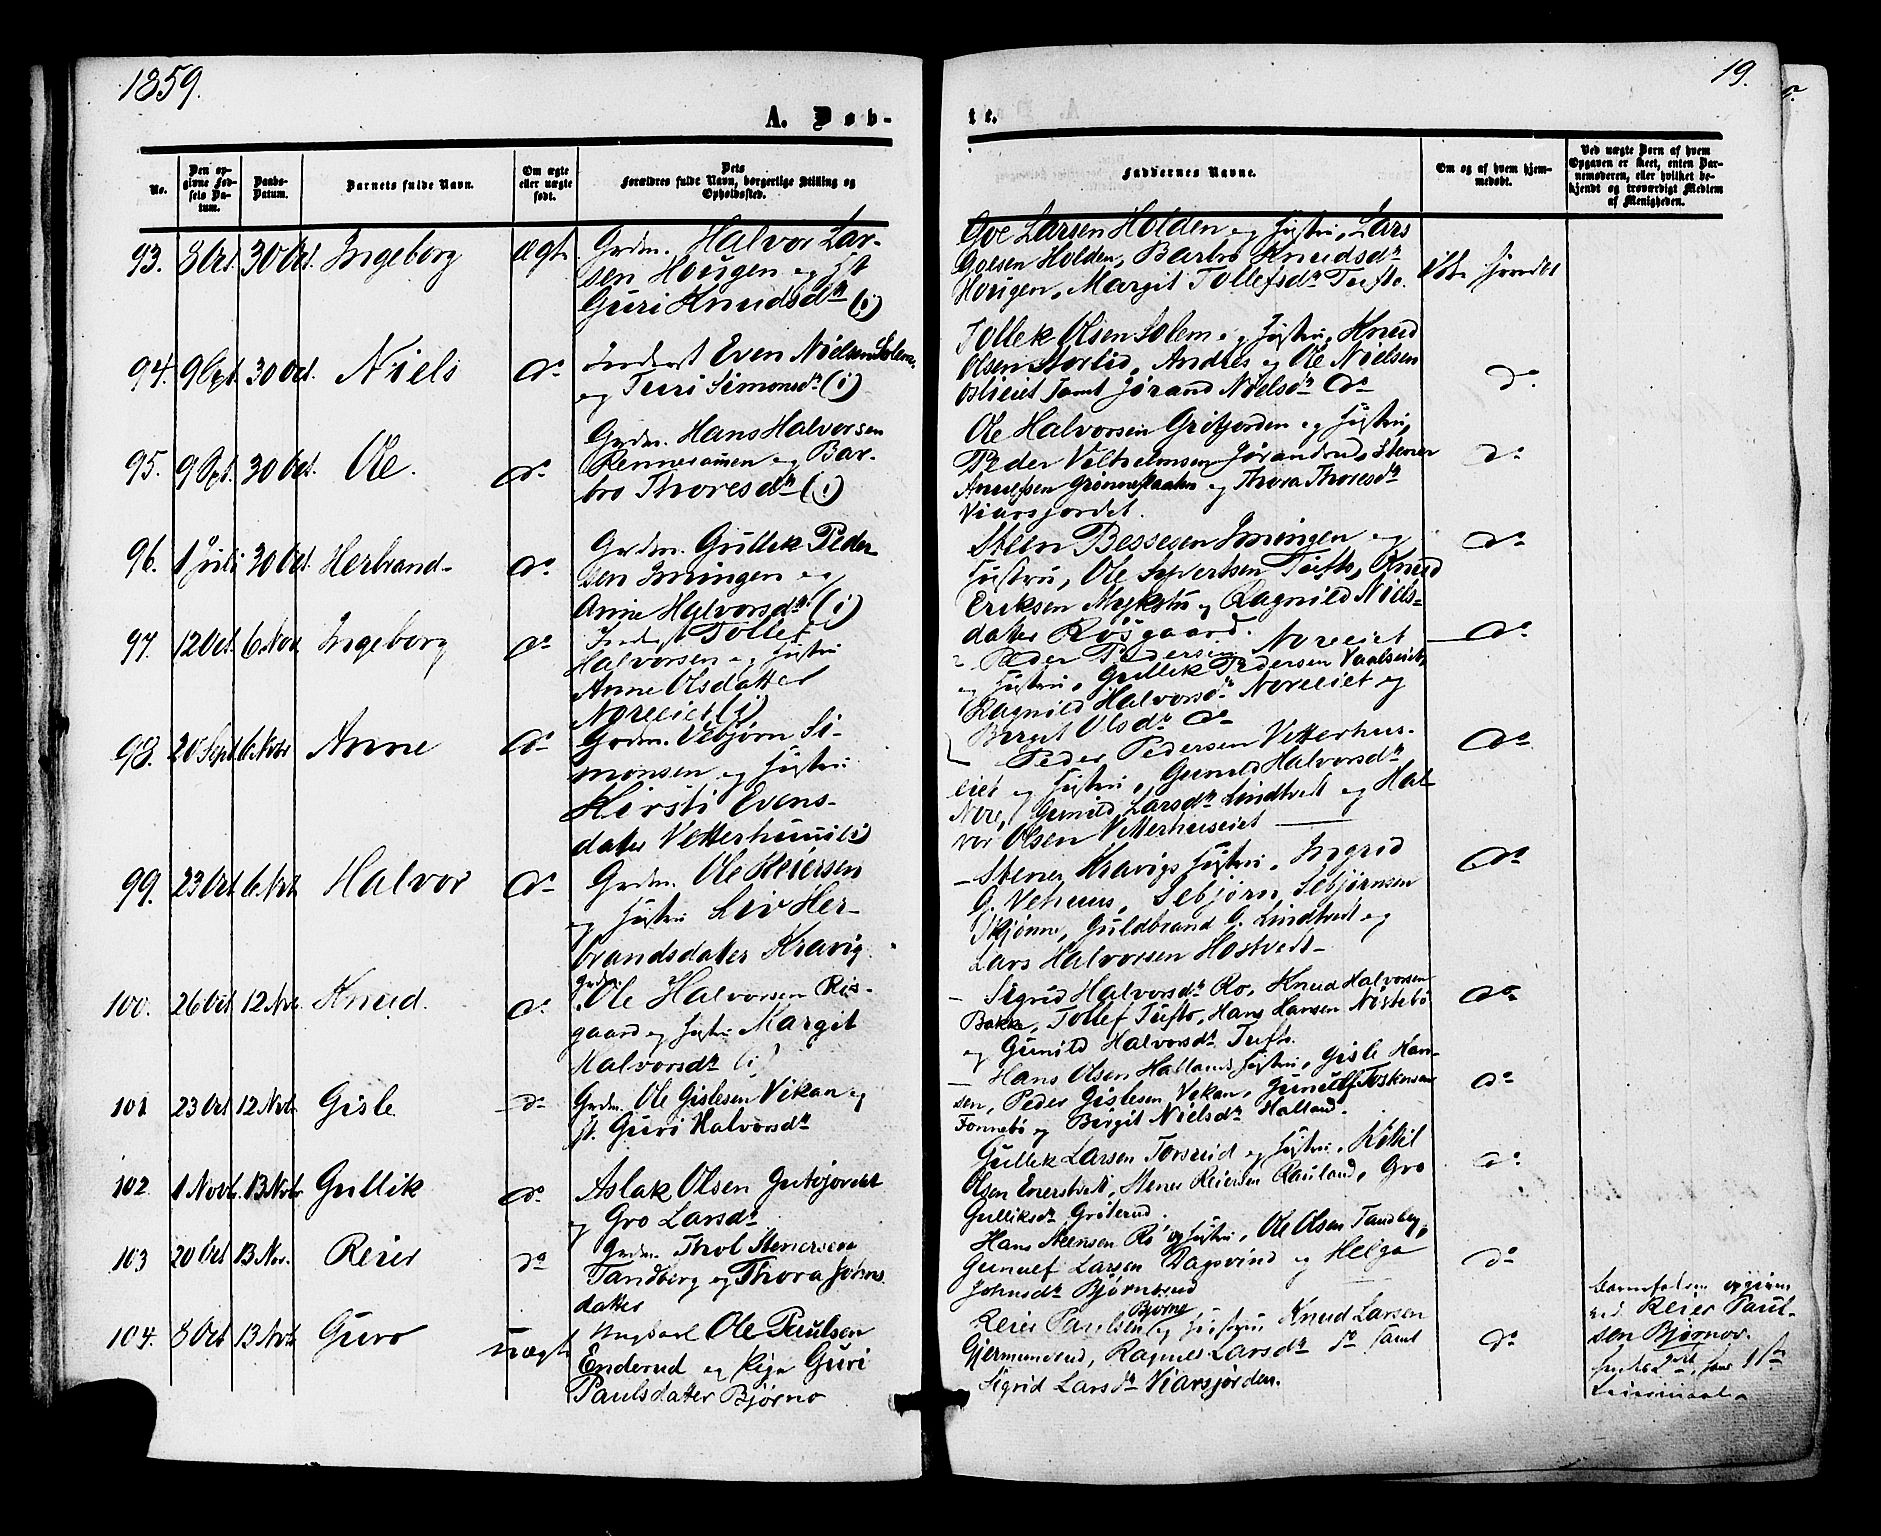 1859.
19.
A. Døb-
te.
No.
Den op-
givne Fød-
sels Da-
tum.
Daabs-
Datum.
Barnets fulde Navn.
Om ægte
eller uægte
født.
Dets
Forældres fulde Navn, borgerlige Stilling og
Opholdssted.
Faddernes Navne.
Om og af hvem hjem-
medøbt.
Ved uægte Børn af hvem
Opgaven er skeet, enten Bar-
nemoderen, eller hvilket be-
kjendt og troværdigt Medlem
af Menigheden.
93. 8 Oct. 30 Oct. Ingeborg ægte
Grdm. Halvor Lar-
sen Hougen og H.
Guri Knudsdr (i)
Goe Larsen Holden og Hustru, Lars
Goesen Holden, Barbro Knudsdr
Hougen, Margit Tollefsdr Tufto.
94. 30 Oct. Niels do
Inderst Even Nielsen
og Turi Simonsdr (i)
Tollek Olsen Solem og Hustru, Knud
Olsen Storlid, Andres og Ole Nielsen
samt Jørand Nielsdr do
do
95. 30 Oct. Ole. do
Grdm. Hans Halvorsen
og Bar-
bro Thoresdr (i)
Ole Halvorsen Grøtjorden og Hustru,
Peder Jørandrud, Stener
og Thora Thoresdr
Viarsjordet.
do
96. 1 Juli 30 Oct. Herbrand do
Grdm. Gullek Peder-
sen Imingen og
Anne Halvorsdr (i)
Steen Bessesen Imingen og
Hustru, Ole Syvertsen Tufto, Knud
Eriksen Myhstu og Ragnild Niels-
datter Røsgaard.
do
97. 12 Oct. 6 Nov Ingeborg do
Inderst Tollef
Halvorsen og Hustru
Anne Olsdatter
Noreeiet (i)
Peder Pedersen Noreeiet
og Hustru, Gullek Pedersen
Ragnild Halvorsdr Noreeiet og
Birgit Olsdr do
do
98. 20 Sept. 6 Nov Anne do
Grdm. Vebjørn Si-
monsen og Hustru
Kirsti Evens-
datter
Peder Pedersen Vetterhus-
eiet og Hustru, Gunild Halvorsdr
Nore, Gunild Larsdr Lindtvedt og Hal-
vor Olsen Vetterhuseiet
do
99. 23 Oct. 6 Nov Halvor do
Grdm. Ole Reiersen
og Hustru Liv Her-
brandsdatter Kravig
Stener Kravigs Hustru, Ingrid
G. Vehuus, Sebjørn Sebjørnsen
Skjønne, Guldbrand G. Lindtvedt og
Lars Halvorsen Hostvedt
do
100. 26 Oct 12 Nov Knud. do
Grdm.
Ole Halvorsen Røs-
gaard og Hustru Margit
Halvorsdr (i)
Sigrid Halvorsdr Ro, Knud Halvorsen
Bakke, Tollef Tufto, Hans Hansen Nøstebø
og Gunild Halvorsdr Tufto.
do
101 23 Oct 12 Nov. Gisle do
Grdm. Ole Gislesen Vikan og
H. Guri Halvorsdr
Hans Olsen Hallands Hustru, Gisle Han-
sen, Peder Gislesen Vekan, Gunulf Torkensen
Fønnebø og Birgit Nielsdr Halland.
do
102 1 Novb. 13 Novbr. Gullik do
Aslak Olsen
og Gro Larsdr
Gullek Larsen Torsrud og Hustru, Kittil
Olsen Enerstvedt, Stener Reiersen Rauland, Gro
Gulliksdr Grøterud.
do
103 20 Oct 13 Nov. Reier do
Grdm. Thol Stenersen
Tandberg og Thora Johns-
datter
Hans Steensen Ro og Hustru, Ole Olsen Tandberg,
Gunulf Larsen Dagsvind og Helga
Johnsdr Bjørnerud
do
104. 8 Oct 13 Nov Guro uægte
Ungkarl Ole Paulsen
Enderud og Pige Guri
Paulsdatter Bjørno
Reier Paulsen Bjørno og Hustru, Knud Larsen
Gjermundrud, Ragnes Larsdr do samt
Sigrid Larsdr Viarsjorden.
do
Barnefaderen opgiven
ved Reier Paul-
sen Bjørnov.